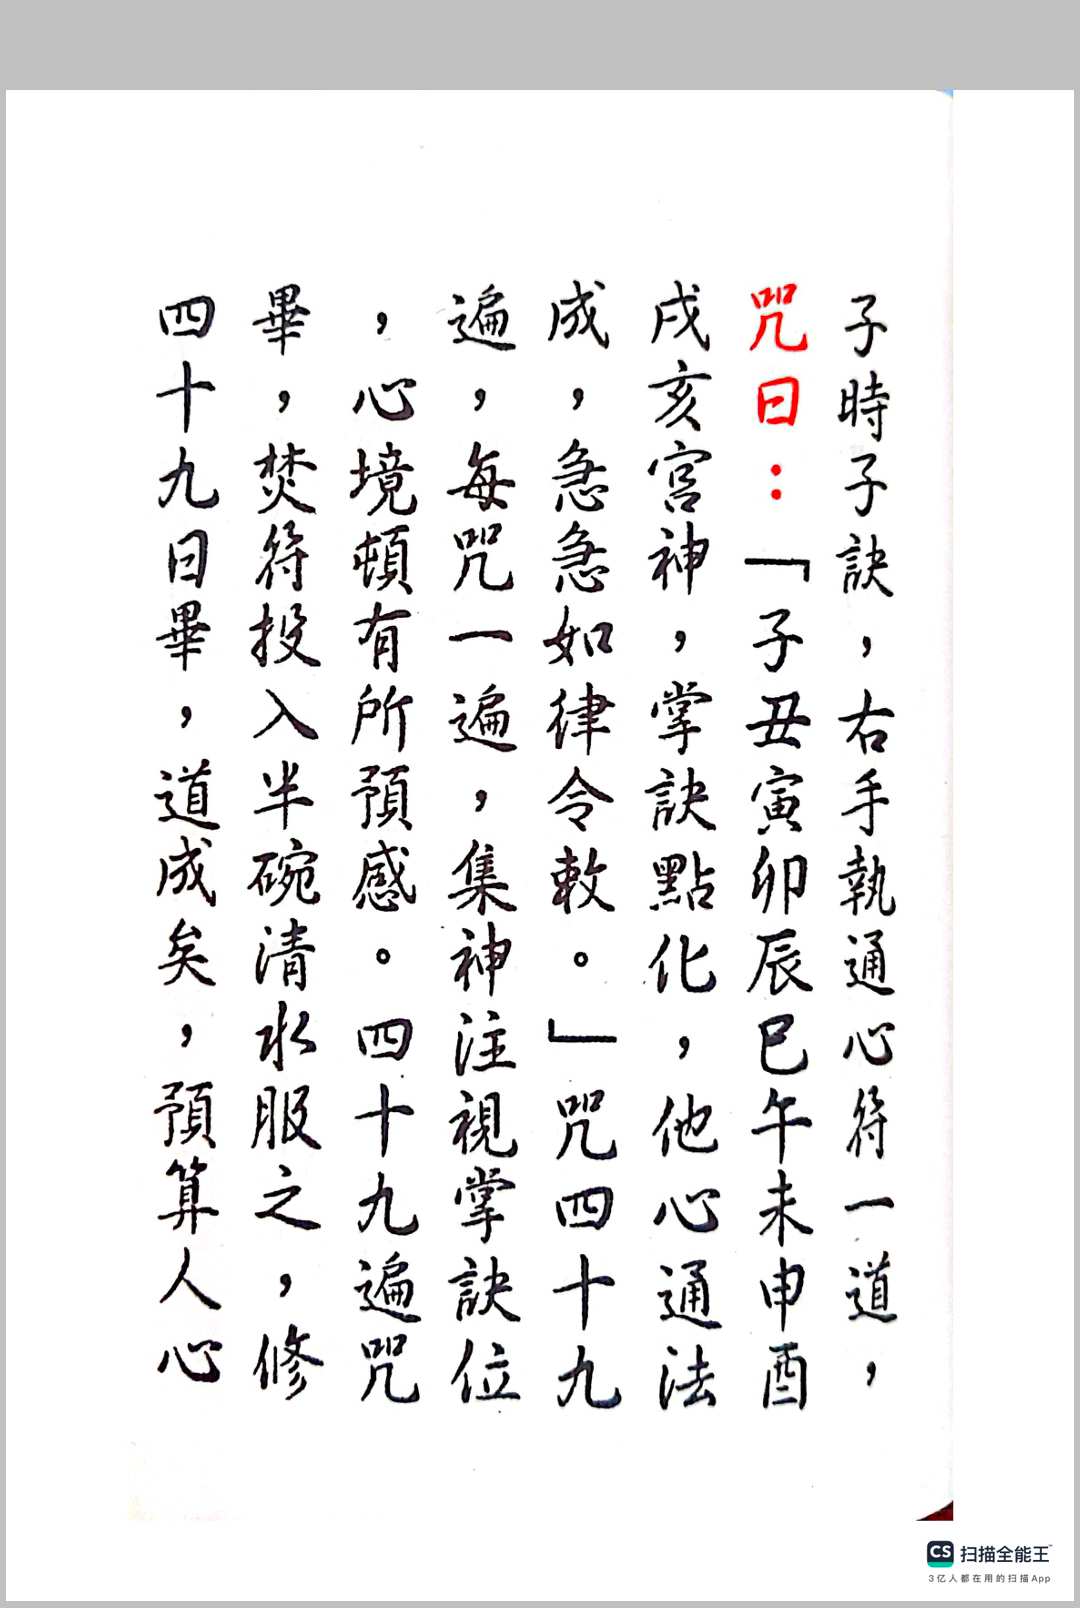 子時子訣，右手執通心符一道，
咒曰：「子丑寅卯辰巳午未申酉
戌亥宮神，掌訣點化，他心通法
成，急急如律令敕。」咒四十九
遍，每咒一遍，集神注視掌訣位
，心境頓有所預感。四十九遍咒
畢，焚符投入半碗清水服之，修
四十九日畢，道成矣，預算人心
CS 扫描全能王
3亿人都在用的扫描App